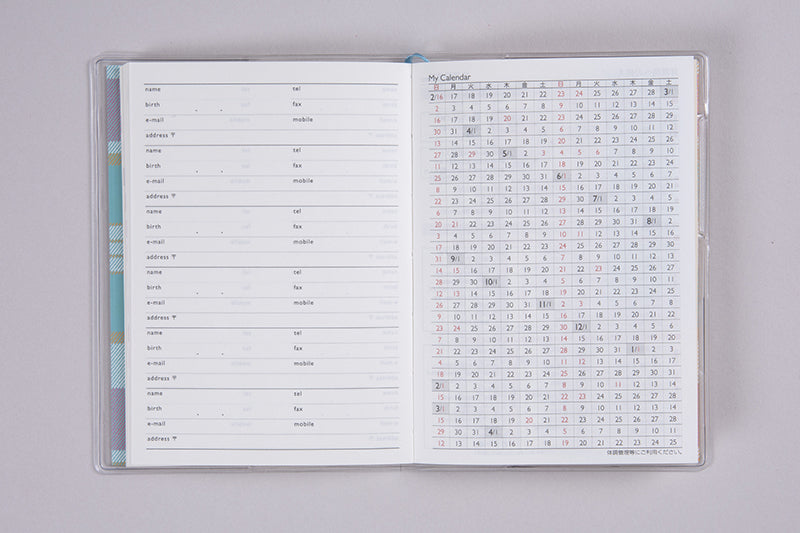 name tel
birth . . fax
e-mail mobile
address 〒
name tel
birth . . fax
e-mail mobile
address 〒
name tel
birth . . fax
e-mail mobile
address 〒
name tel
birth . . fax
e-mail mobile
address 〒
name tel
birth . . fax
e-mail mobile
address 〒
name tel
birth . . fax
e-mail mobile
address 〒
My Calendar
日 月 火 水 木 金 土 日 月 火 水 木 金 土
2/16 17 18 19 20 21 22 23 24 25 26 27 28 3/1
2 3 4 5 6 7 8 9 10 11 12 13 14 15
16 17 18 19 20 21 22 23 24 25 26 27 28 29
30 31 4/1 2 3 4 5 6 7 8 9 10 11 12
13 14 15 16 17 18 19 20 21 22 23 24 25 26
27 28 29 30 5/1 2 3 4 5 6 7 8 9 10
11 12 13 14 15 16 17 18 19 20 21 22 23 24
25 26 27 28 29 30 31 6/1 2 3 4 5 6 7
8 9 10 11 12 13 14 15 16 17 18 19 20 21
22 23 24 25 26 27 28 29 30 7/1 2 3 4 5
6 7 8 9 10 11 12 13 14 15 16 17 18 19
20 21 22 23 24 25 26 27 28 29 30 31 8/1 2
3 4 5 6 7 8 9 10 11 12 13 14 15 16
17 18 19 20 21 22 23 24 25 26 27 28 29 30
31 9/1 2 3 4 5 6 7 8 9 10 11 12 13
14 15 16 17 18 19 20 21 22 23 24 25 26 27
28 29 30 10/1 2 3 4 5 6 7 8 9 10 11
12 13 14 15 16 17 18 19 20 21 22 23 24 25
26 27 28 29 30 31 11/1 2 3 4 5 6 7 8
9 10 11 12 13 14 15 16 17 18 19 20 21 22
23 24 25 26 27 28 29 30 12/1 2 3 4 5 6
7 8 9 10 11 12 13 14 15 16 17 18 19 20
21 22 23 24 25 26 27 28 29 30 31 1/1 2 3
4 5 6 7 8 9 10 11 12 13 14 15 16 17
18 19 20 21 22 23 24 25 26 27 28 29 30 31
2/1 2 3 4 5 6 7 8 9 10 11 12 13 14
15 16 17 18 19 20 21 22 23 24 25 26 27 28
3/1 2 3 4 5 6 7 8 9 10 11 12 13 14
15 16 17 18 19 20 21 22 23 24 25 26 27 28
29 30 31 4/1 2 3 4 5 6 7 8 9 10 11
12 13 14 15 16 17 18 19 20 21 22 23 24 25
体調管理等にご利用ください。